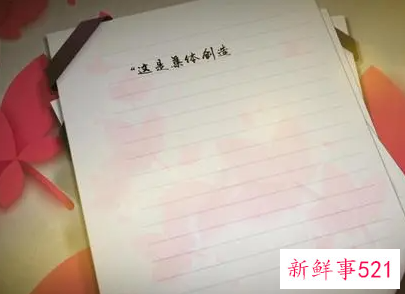 “这是集体创造
新鲜事521